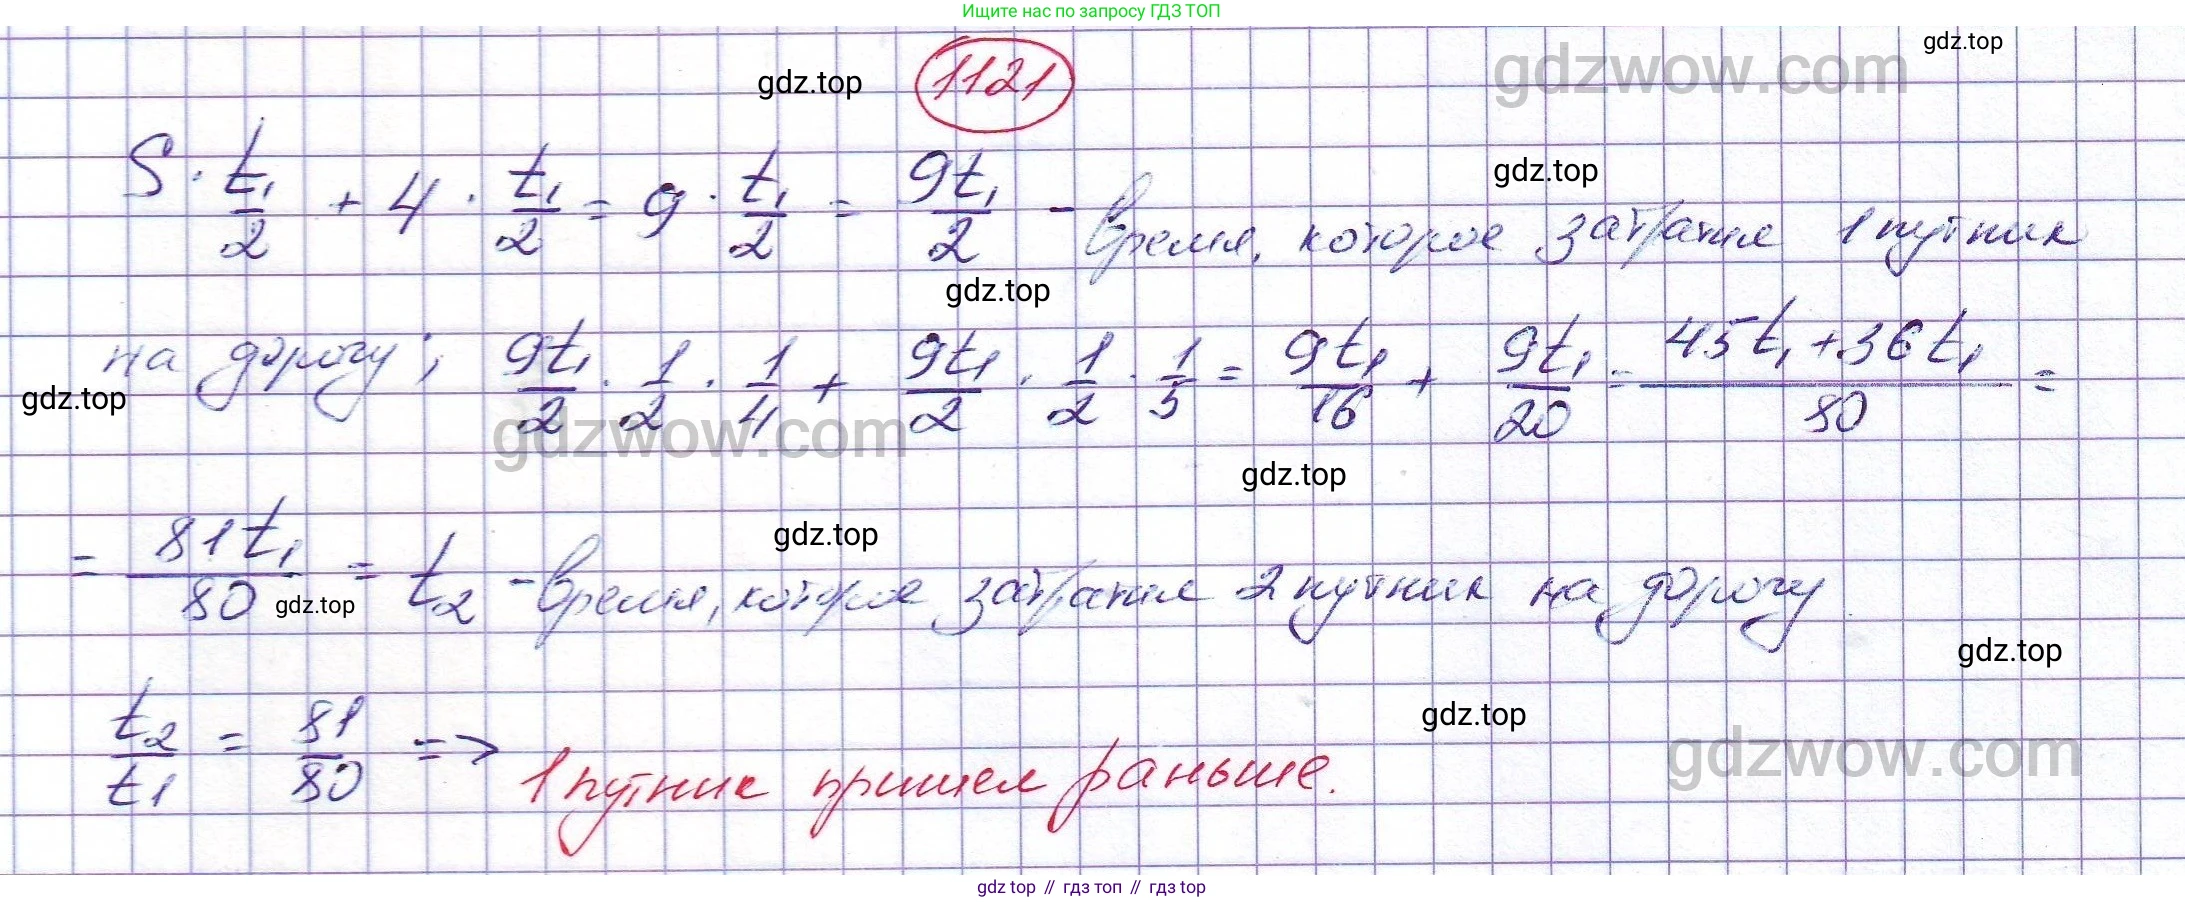 Ищите нас по запросу ГДЗ ТОП
gdz.top
gdzwow.com
gdz.top 1121
S · t₁/2 + 4 · t₁/2 = 9 · t₁/2 = 9t₁/2 - время, которое затратил 1 путник
gdz.top
gdz.top
на дорогу; 9t₁/2 · 1/2 · 1/4 + 9t₁/2 · 1/2 · 1/5 = 9t₁/16 + 9t₁/20 = 45t₁+36t₁/80 =
gdz.top
gdzwow.com
gdz.top
gdz.top
= 81t₁/80 = t₂ - время, которое затратил 2 путник на дорогу.
gdz.top
gdz.top
gdz.top
t₂/t1 = 81/80 => 1 путник пришел раньше.
gdzwow.com
gdz top // гдз топ // гдз top